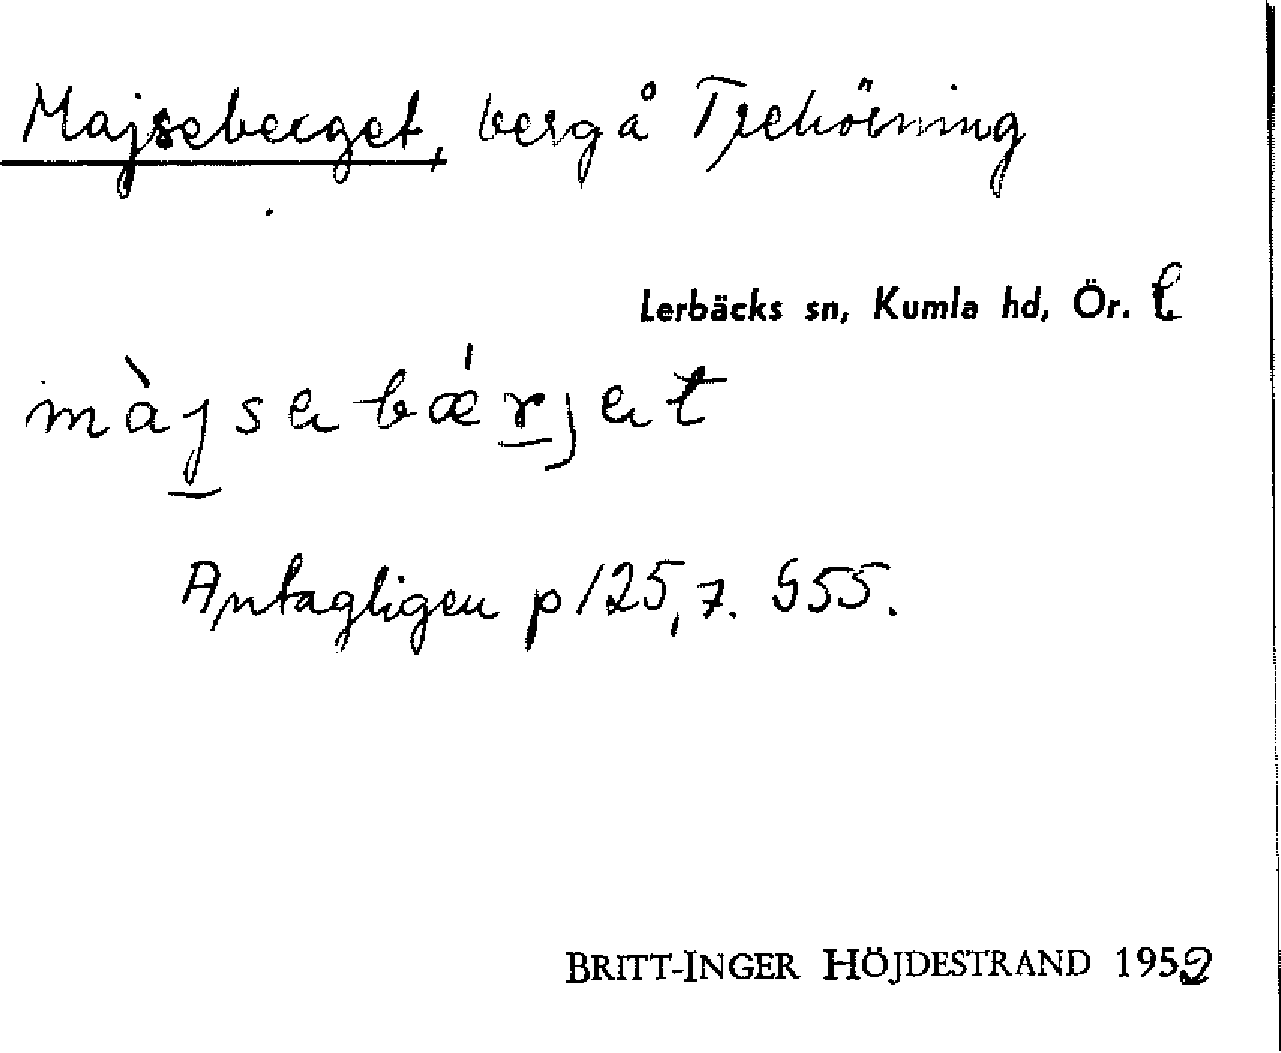 Majseberget, berg å Trehörning
Lerbäcks sn, Kumla hd, Ör. l
màjsebǽrjet
Antagligen p 125,7. 955.
BRITT-INGER HÖJDESTRAND 1952